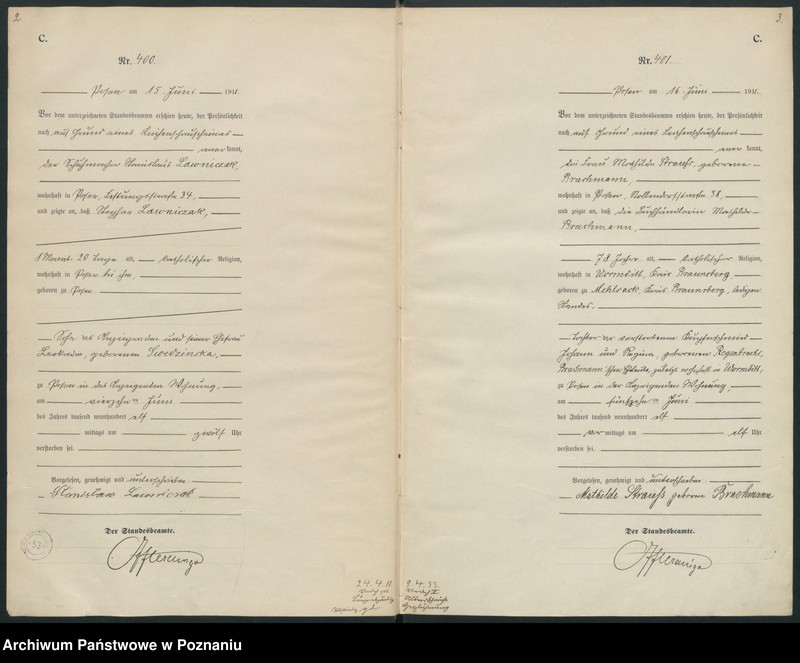 2
C.
Nr. 400.
Posen am 15. Juni 1911.
Vor dem unterzeichneten Standesbeamten erschien heute, der Persönlichkeit
nach auf Grund eines Leichenschauscheines
aner kannt,
der Schuhmacher Stanislaus Lawniczak,
wohnhaft in Posen, 34,
und zeigte an, daß Stephan Lawniczak,
1 Monat 20 Tage alt, katholischer Religion,
wohnhaft in Posen bei ihm,
geboren zu Posen
Sohn des Anzeigenden und seiner Ehefrau
geborenen
zu Posen in des Anzeigenden Wohnung,
am vierzehn ten Juni
des Jahres tausend neunhundert elf
mittags um zwölf Uhr
verstorben sei.
Vorgelesen, genehmigt und unterschrieben
Stanisław Lawniczak
Der Standesbeamte.
24. 4. 11
3.
C.
Nr. 401.
Posen am 16. Juni 1911.
Vor dem unterzeichneten Standesbeamten erschien heute, der Persönlichkeit
nach auf Grund eines Leichenschauscheines
aner kannt,
die Frau Mathilde Strauss, geborene
Brachmann,
wohnhaft in Posen, 38,
und zeigte an, daß die Buchhändlerin Mathilde
Brachmann,
78 Jahre alt, katholischer Religion,
wohnhaft in Wormditt, Kreis Braunsberg
geboren zu Mehlsack, Kreis Braunsberg, ledigen
Standes.
Tochter der verstorbenen
Johann und Regina, geborenen Regenbrecht,
Brachmann'schen Eheleute, zuletzt wohnhaft in Wormditt,
zu Posen in der Anzeigenden Wohnung,
am fünfzehn ten Juni
des Jahres tausend neunhundert elf
vor mittags um elf Uhr
verstorben sei.
Vorgelesen, genehmigt und unterschrieben
Mathilde Strauss geborene Brachmann
Der Standesbeamte.
9. 4. 33.
Archiwum Państwowe w Poznaniu